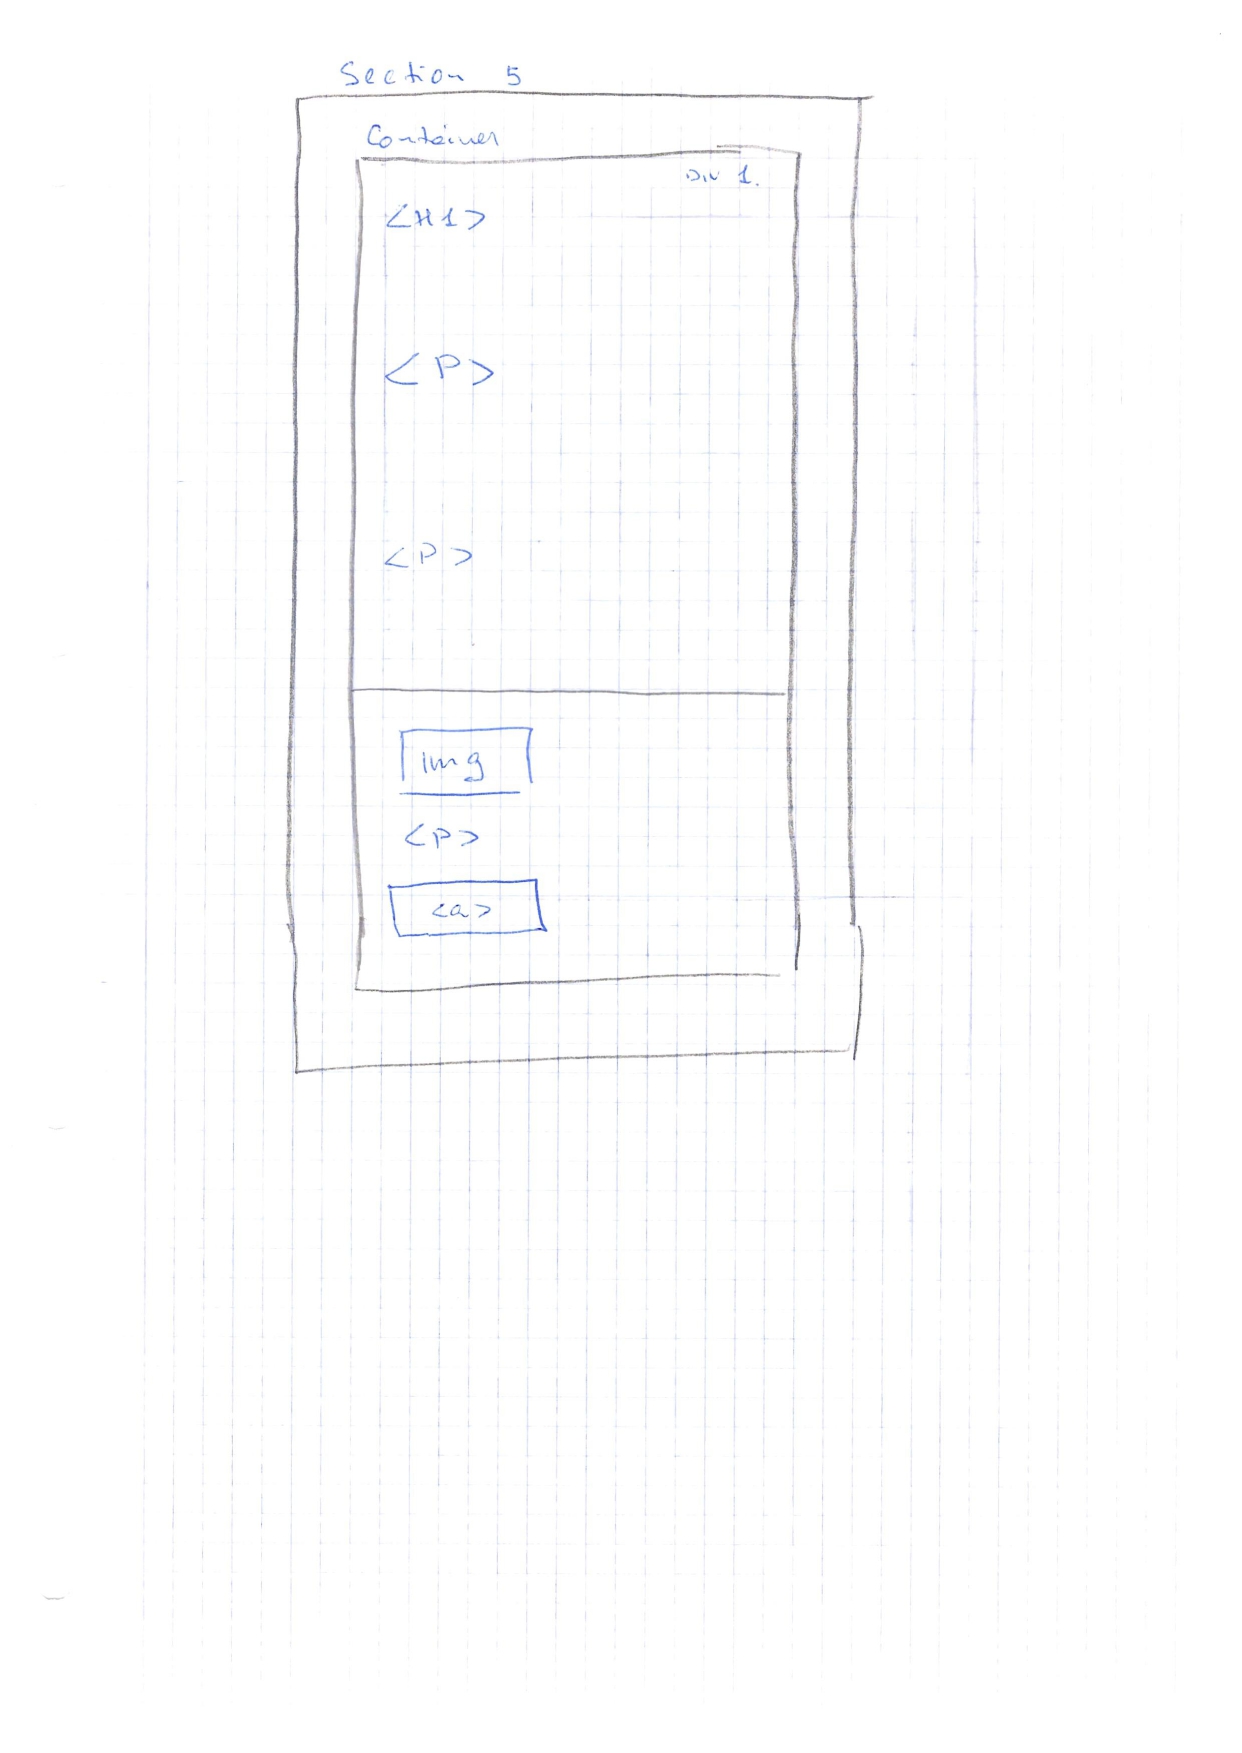 Section 5
Container
Div 1.
<H1>
<P>
<P>
img
<P>
<a>